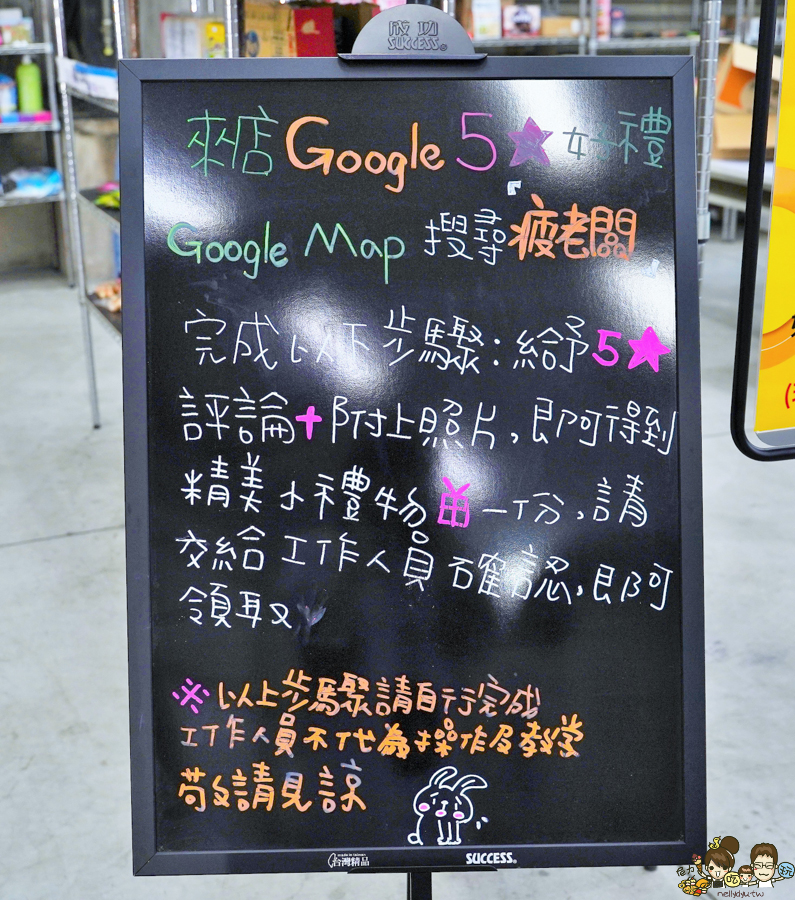 成功
SUCCESS®
來店Google 5★好禮
Google Map 搜尋疲老闆
完成以下步驟：給予5★
評論+附上照片，即可得到
精美小禮物一份，請
交給工作人員確認，即可
領取
※以上步驟請自行完成
工作人員不代為操作及教學
敬請見諒
台灣精品
SUCCESS®
吃
玩
nellydyu.tw